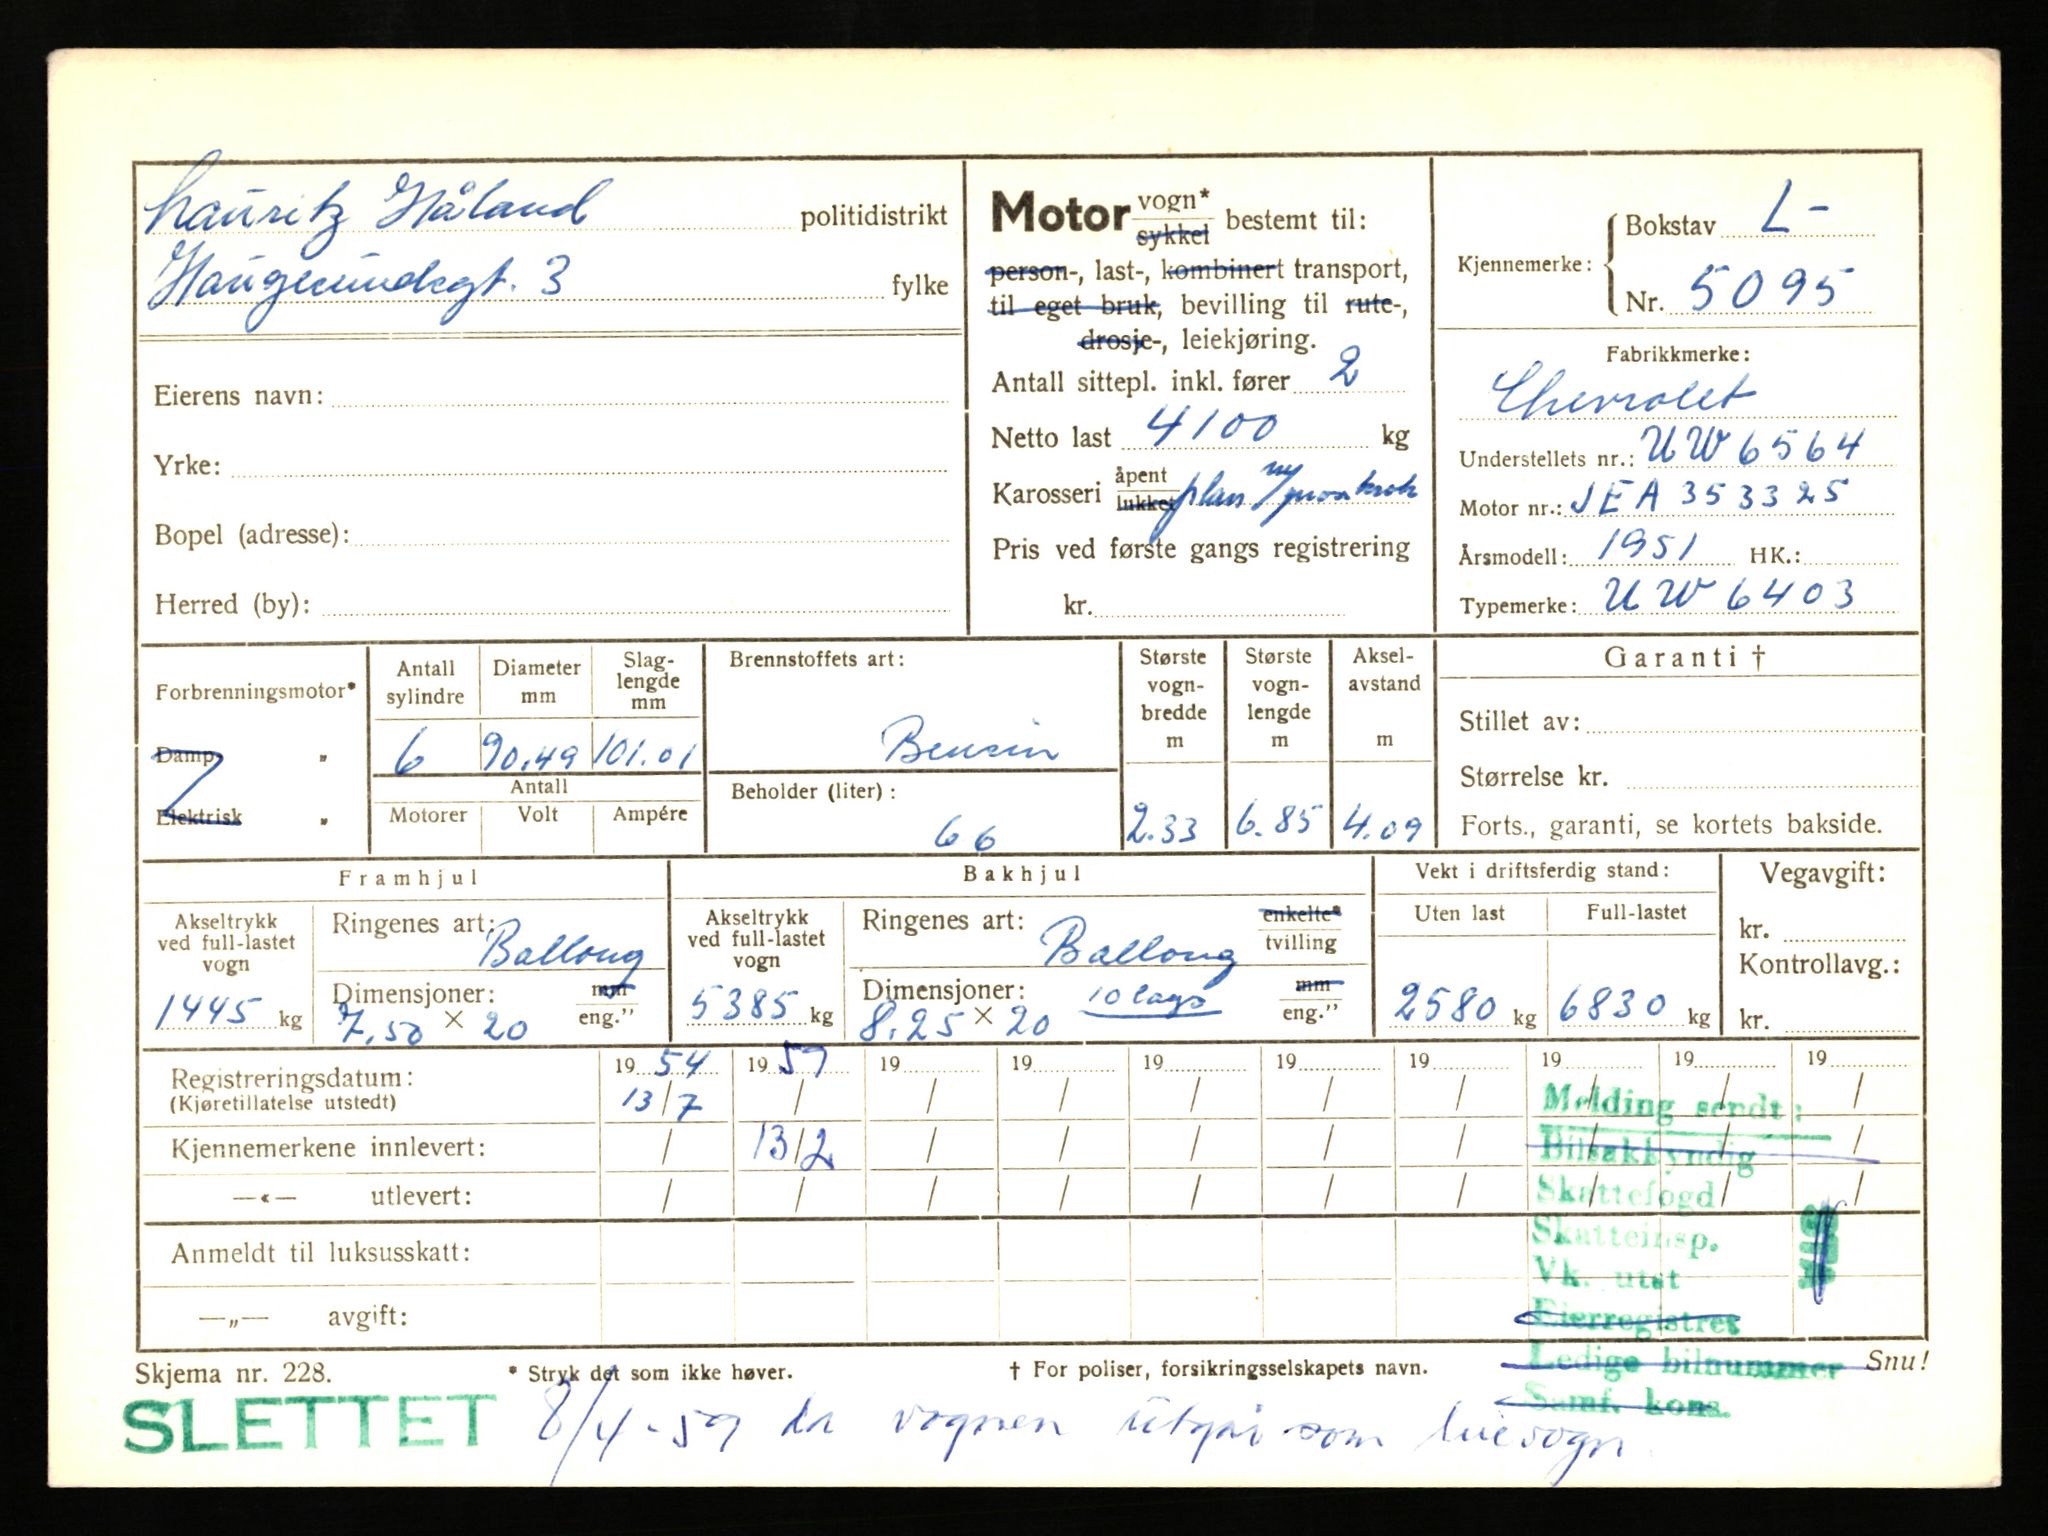 Lauritz Håland politidistrikt
Haugesundsgt. 3 fylke
Eierens navn:
Yrke:
Bopel (adresse):
Herred (by):
Motor vogn* sykkel bestemt til:
person-, last-, kombinert transport,
til eget bruk, bevilling til rute-,
drosje-, leiekjøring.
Antall sittepl. inkl. fører 2
Netto last 4100 kg
Karosseri åpent lukket plan
Pris ved første gangs registrering
kr.
Kjennemerke: Bokstav L-
Nr. 5095
Fabrikkmerke:
Chevrolet
Understellets nr.: UW6564
Motor nr.: JEA353325
Årsmodell: 1951 HK.:
Typemerke: UW6403
Forbrenningsmotor*
Damp. „
Elektrisk „
Antall sylindre Diameter mm Slag-lengde mm
6 90.49 101.01
Antall
Motorer Volt Ampére
Brennstoffets art:
Bensin
Beholder (liter):
66
Største vogn-bredde m
2.33
Største vogn-lengde m
6.85
Aksel-avstand m
4.09
Garanti †
Stillet av:
Størrelse kr.
Forts., garanti, se kortets bakside.
Framhjul
Akseltrykk ved full-lastet vogn
1445 kg
Ringenes art: Ballong
Dimensjoner: mm eng."
7.50 × 20
Bakhjul
Akseltrykk ved full-lastet vogn
5385 kg
Ringenes art: Ballong enkelte* tvilling
Dimensjoner: 10 lags mm eng."
8.25 × 20
Vekt i driftsferdig stand:
Uten last Full-lastet
2580 kg 6830 kg
Vegavgift:
kr.
Kontrollavg.:
kr.
19 54 19 59 19 19 19 19 19 19 19 19
Registreringsdatum: 13/7 / / / / / / / / /
(Kjøretillatelse utstedt)
Kjennemerkene innlevert: / 13/2 / / / / / / / /
—«— utlevert: / / / / / / / / / /
Anmeldt til luksusskatt:
—„— avgift:
Melding sendt:
Bilsakkyndig
Skattefogd
Skatteinsp.
Vk. utst
Eierregistret
Ledige bilnummer
Samf. kons.
Skjema nr. 228.
* Stryk det som ikke høver.
† For poliser, forsikringsselskapets navn.
Snu!
SLETTET 8/4-59 da vognen utgår som leievogn